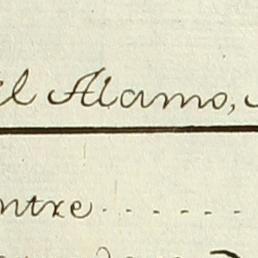 el Alamo,
ntre . . . . . .